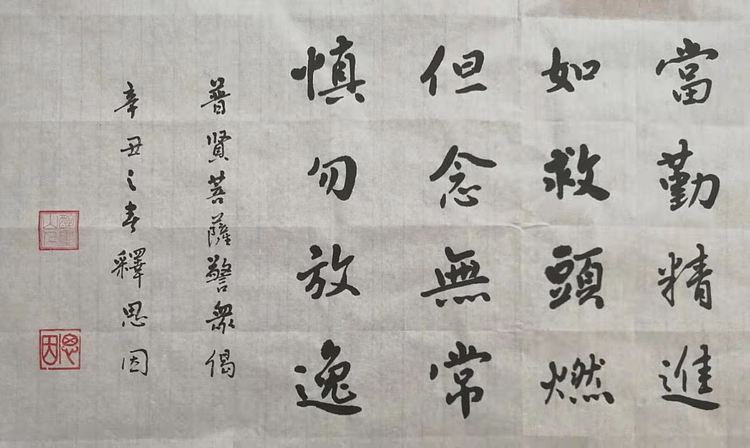 當勤精進
如救頭燃
但念無常
慎勿放逸
普賢菩薩警眾偈
辛丑之春釋思因
思因